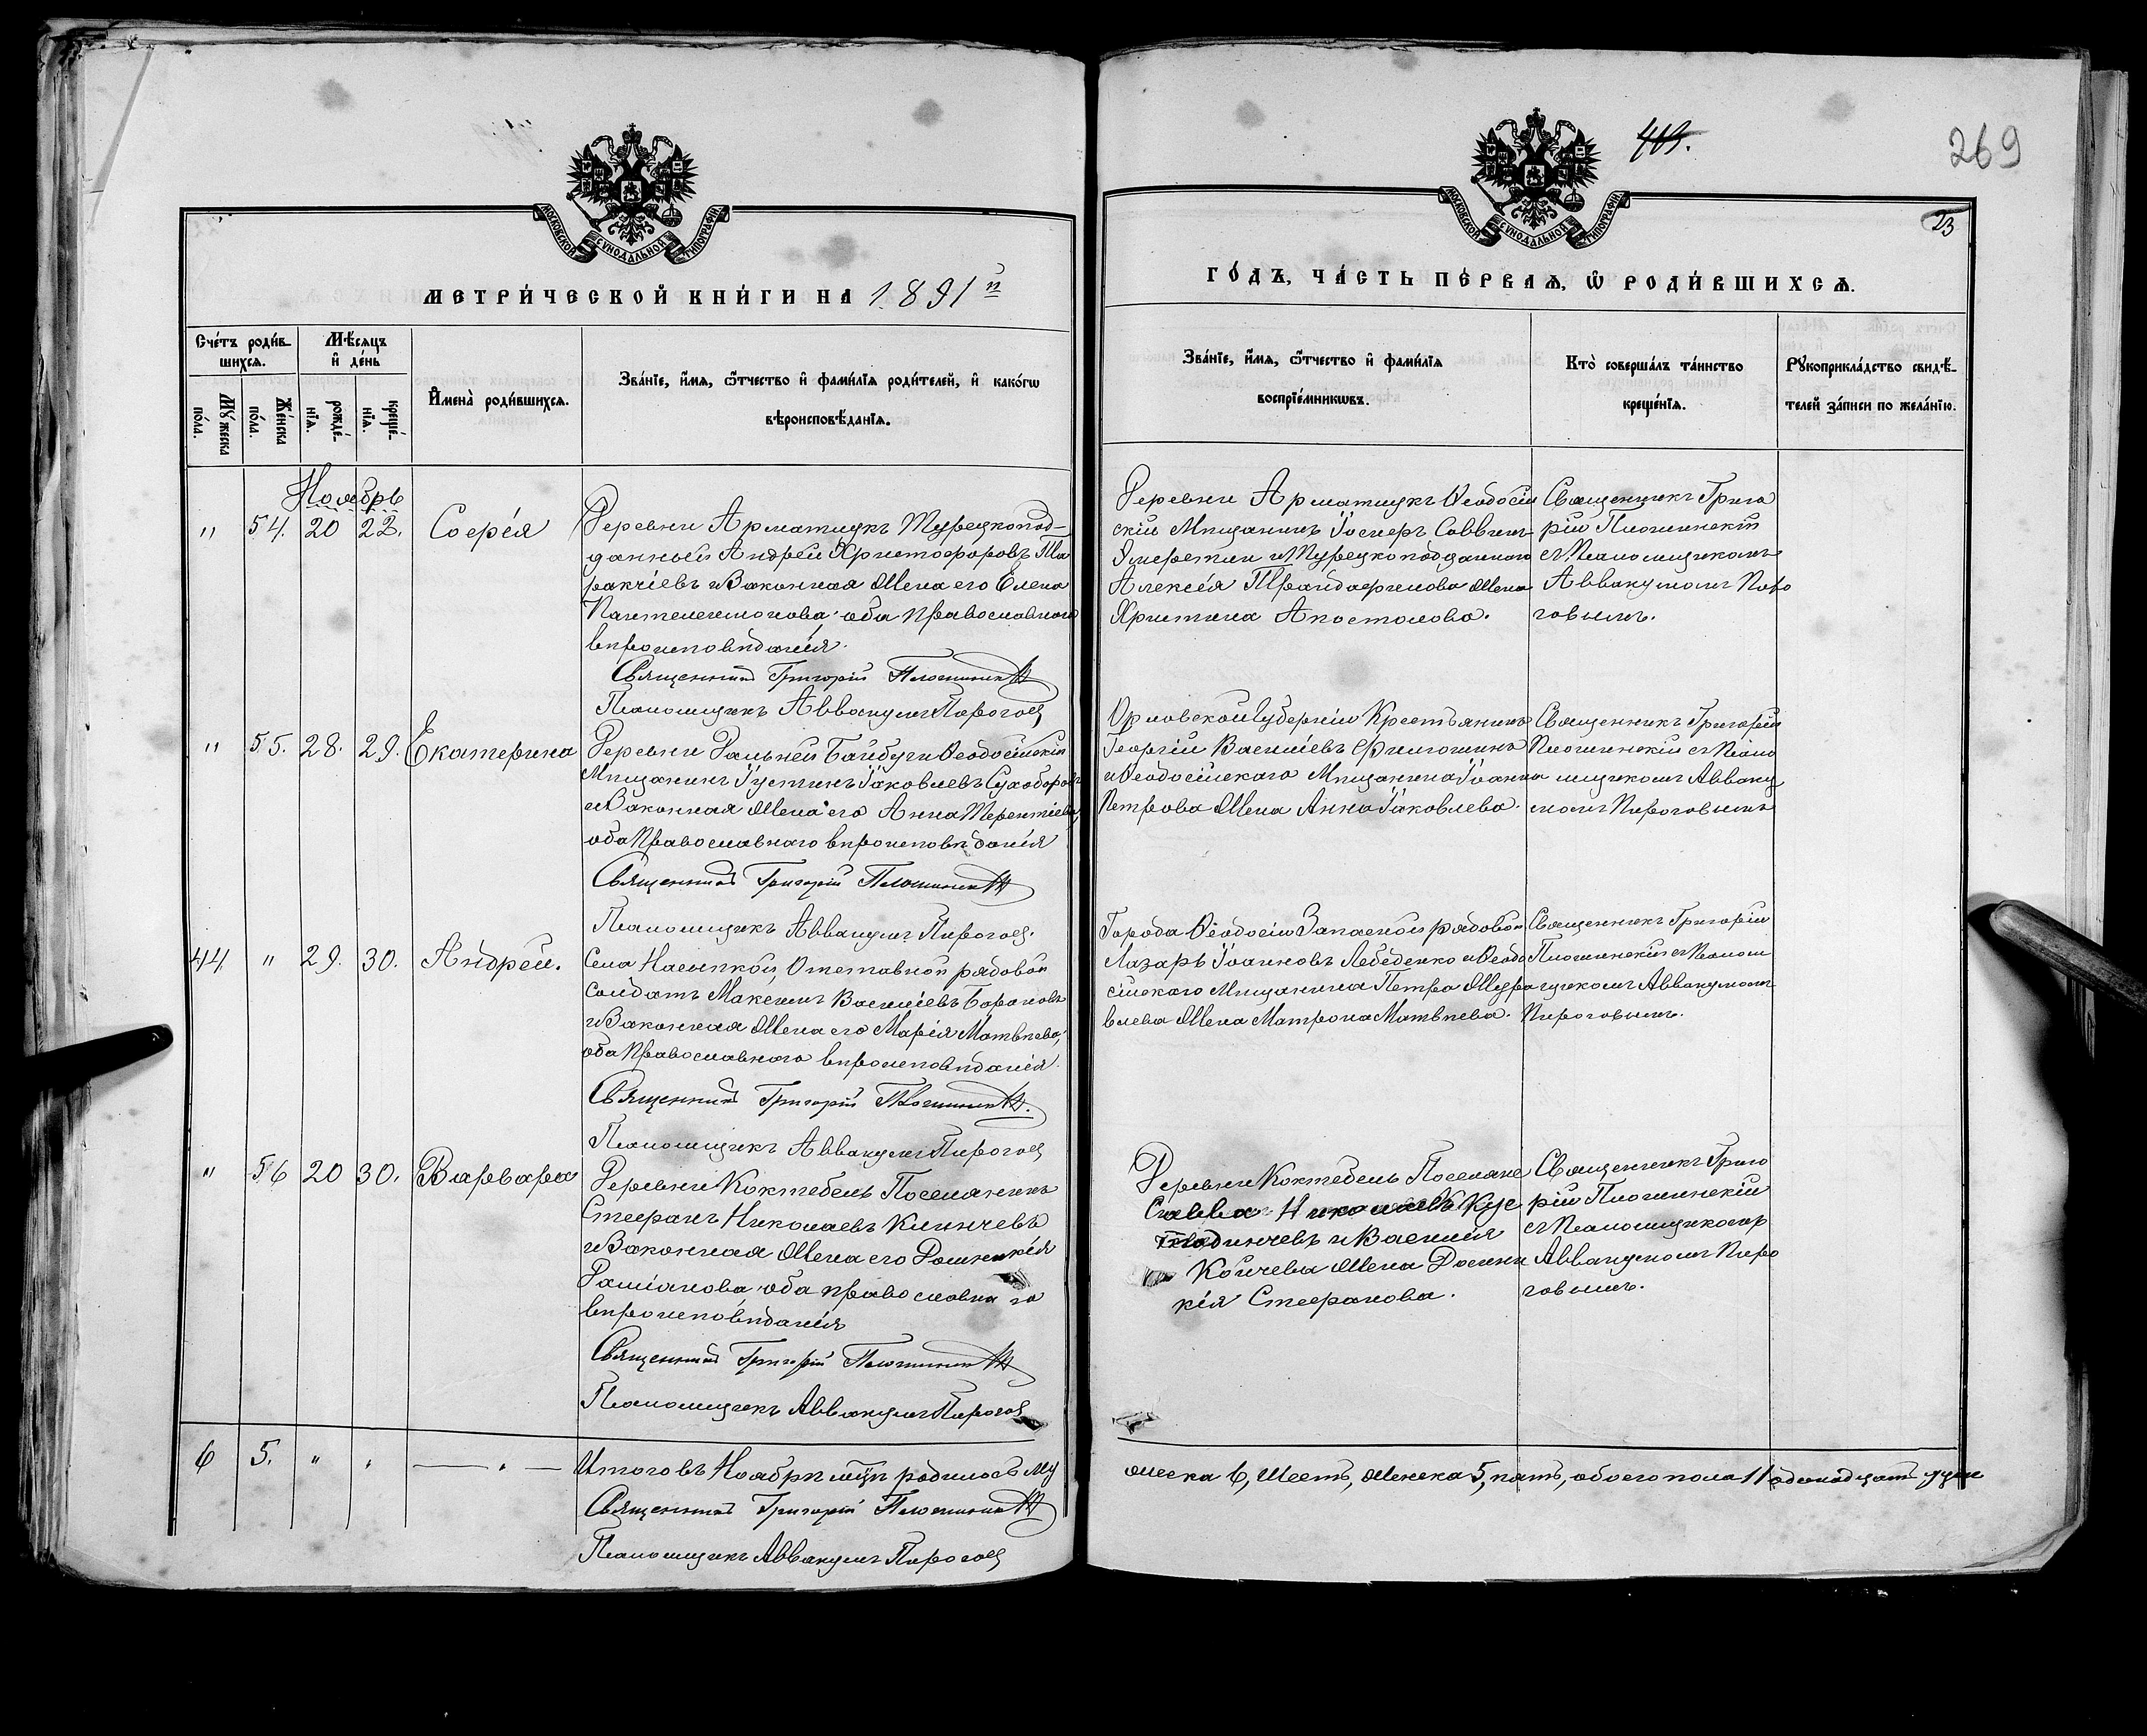 МОСКОВСКОЙ СѴНОДАЛЬНОЙ ТИПОГРАФІИ
МЕТРИ́ЧЕСКОЙ КНИ́ГИ НА 1891й
Сче́тъ роди́в-
шихсѧ.
Мѣ́сяцъ
и҆ де́нь
И҆мена̀ роди́вшихсѧ.
Зва́нїе, и҆́мѧ, ѻ҆́тчество и҆ фами́лїѧ роди́телей, и҆ како́гѡ
вѣроисповѣ́данїѧ.
Мꙋ́жеска
по́ла.
Же́нска
по́ла.
рожде́-
нїѧ.
креще́-
нїѧ.
Ноябрь
" 54. 20 22. Софія
Деревни Арматлукъ Турецкопод-
данный Андрей Христофоровъ Та
ракчіевъ и Законная Жена его Елена
Пантелеимонова оба православного
вѣроисповѣданія.
Священникъ Григорій
Псаломщикъ Аввакумъ Пирогов
" 55. 28. 29. Екатерина
Деревни Дальней Байбуги Ѳеодосійскій
Мѣщанинъ Іустинъ Іаковлевъ Сухоборов
и Законная Жена его Анна Терентіева,
оба Православнаго вѣроисповѣданія
Священникъ Григорій
Псаломщикъ Аввакумъ Пирогов.
44 " 29. 30. Андрей.
Села Насыпкой, Отставной рядовой
Солдатъ Максимъ Василіевъ Барановъ
и Законная Жена его Марія Матвѣева,
оба Православнаго вѣроисповѣданія.
Священникъ Григорій
Псаломщикъ Аввакумъ Пирогов
" 56 20 30. Варвара
Деревни Коктебель Поселянинъ
Стефанъ Николаевъ Клинчевъ
и Законная Жена его
оба православна го
вѣроисповѣданія
Священникъ Григорій
Псаломщикъ Аввакумъ Пирогов
6 5. " " — " —
Итого въ Ноябрѣ м͠цѣ родилось му
Священникъ Григорій
Псаломщикъ Аввакумъ Пирогов
413.
269
23
МОСКОВСКОЙ СѴНОДАЛЬНОЙ ТИПОГРАФІИ
ГО́ДЪ, ЧА́СТЬ ПЕ́РВАѦ, Ѡ҆ РОДИ́ВШИХСѦ.
Зва́нїе, и҆́мѧ, ѻ҆́тчество и҆ фами́лїѧ
воспрїе́мникѡвъ.
Кто̀ соверша́лъ та́инство
креще́нїѧ.
Рꙋкоприкла́дство свидѣ́-
телей за́писи по жела́нїю.
Деревни Арматлукъ Ѳеодосій
скій Мѣщанинъ Іосифъ Саввинъ
и Турецкоподданного
Алексѣя Трандафилова Жена
Христина Апостолова.
Священникъ Григо
рій
съ Псаломщикомъ
Аввакумомъ Пиро
говымъ.
Орловской Губерніи Крестьянинъ
Георгій Василіевъ Филошинъ
и Ѳеодосійскаго Мѣщанина Іоанна
Петрова Жена Анна Іаковлева.
Священникъ Григорій
съ Псало
мщикомъ Авваку
момъ Пироговымъ
Города Ѳеодосіи Запасной рядовой
Лазарь Іоанновъ Лебеденко и Ѳеодо
сійскаго Мѣщанина Петра Жура
влева Жена Матрона Матвѣева.
Священникъ Григорій
съ Псаломщ
икомъ Аввакумомъ
Пироговымъ.
Деревни Коктебель Поселяне
Савва Николаевъ Кус
и Василія
Койчева Жена Домни
кія Стефанова.
Священникъ Григо
рій
съ Псаломщикомъ
Аввакумомъ Пиро
говымъ.
жеска 6, Шесть, женска 5, пять, обоего пола 11 одинадцать душъ